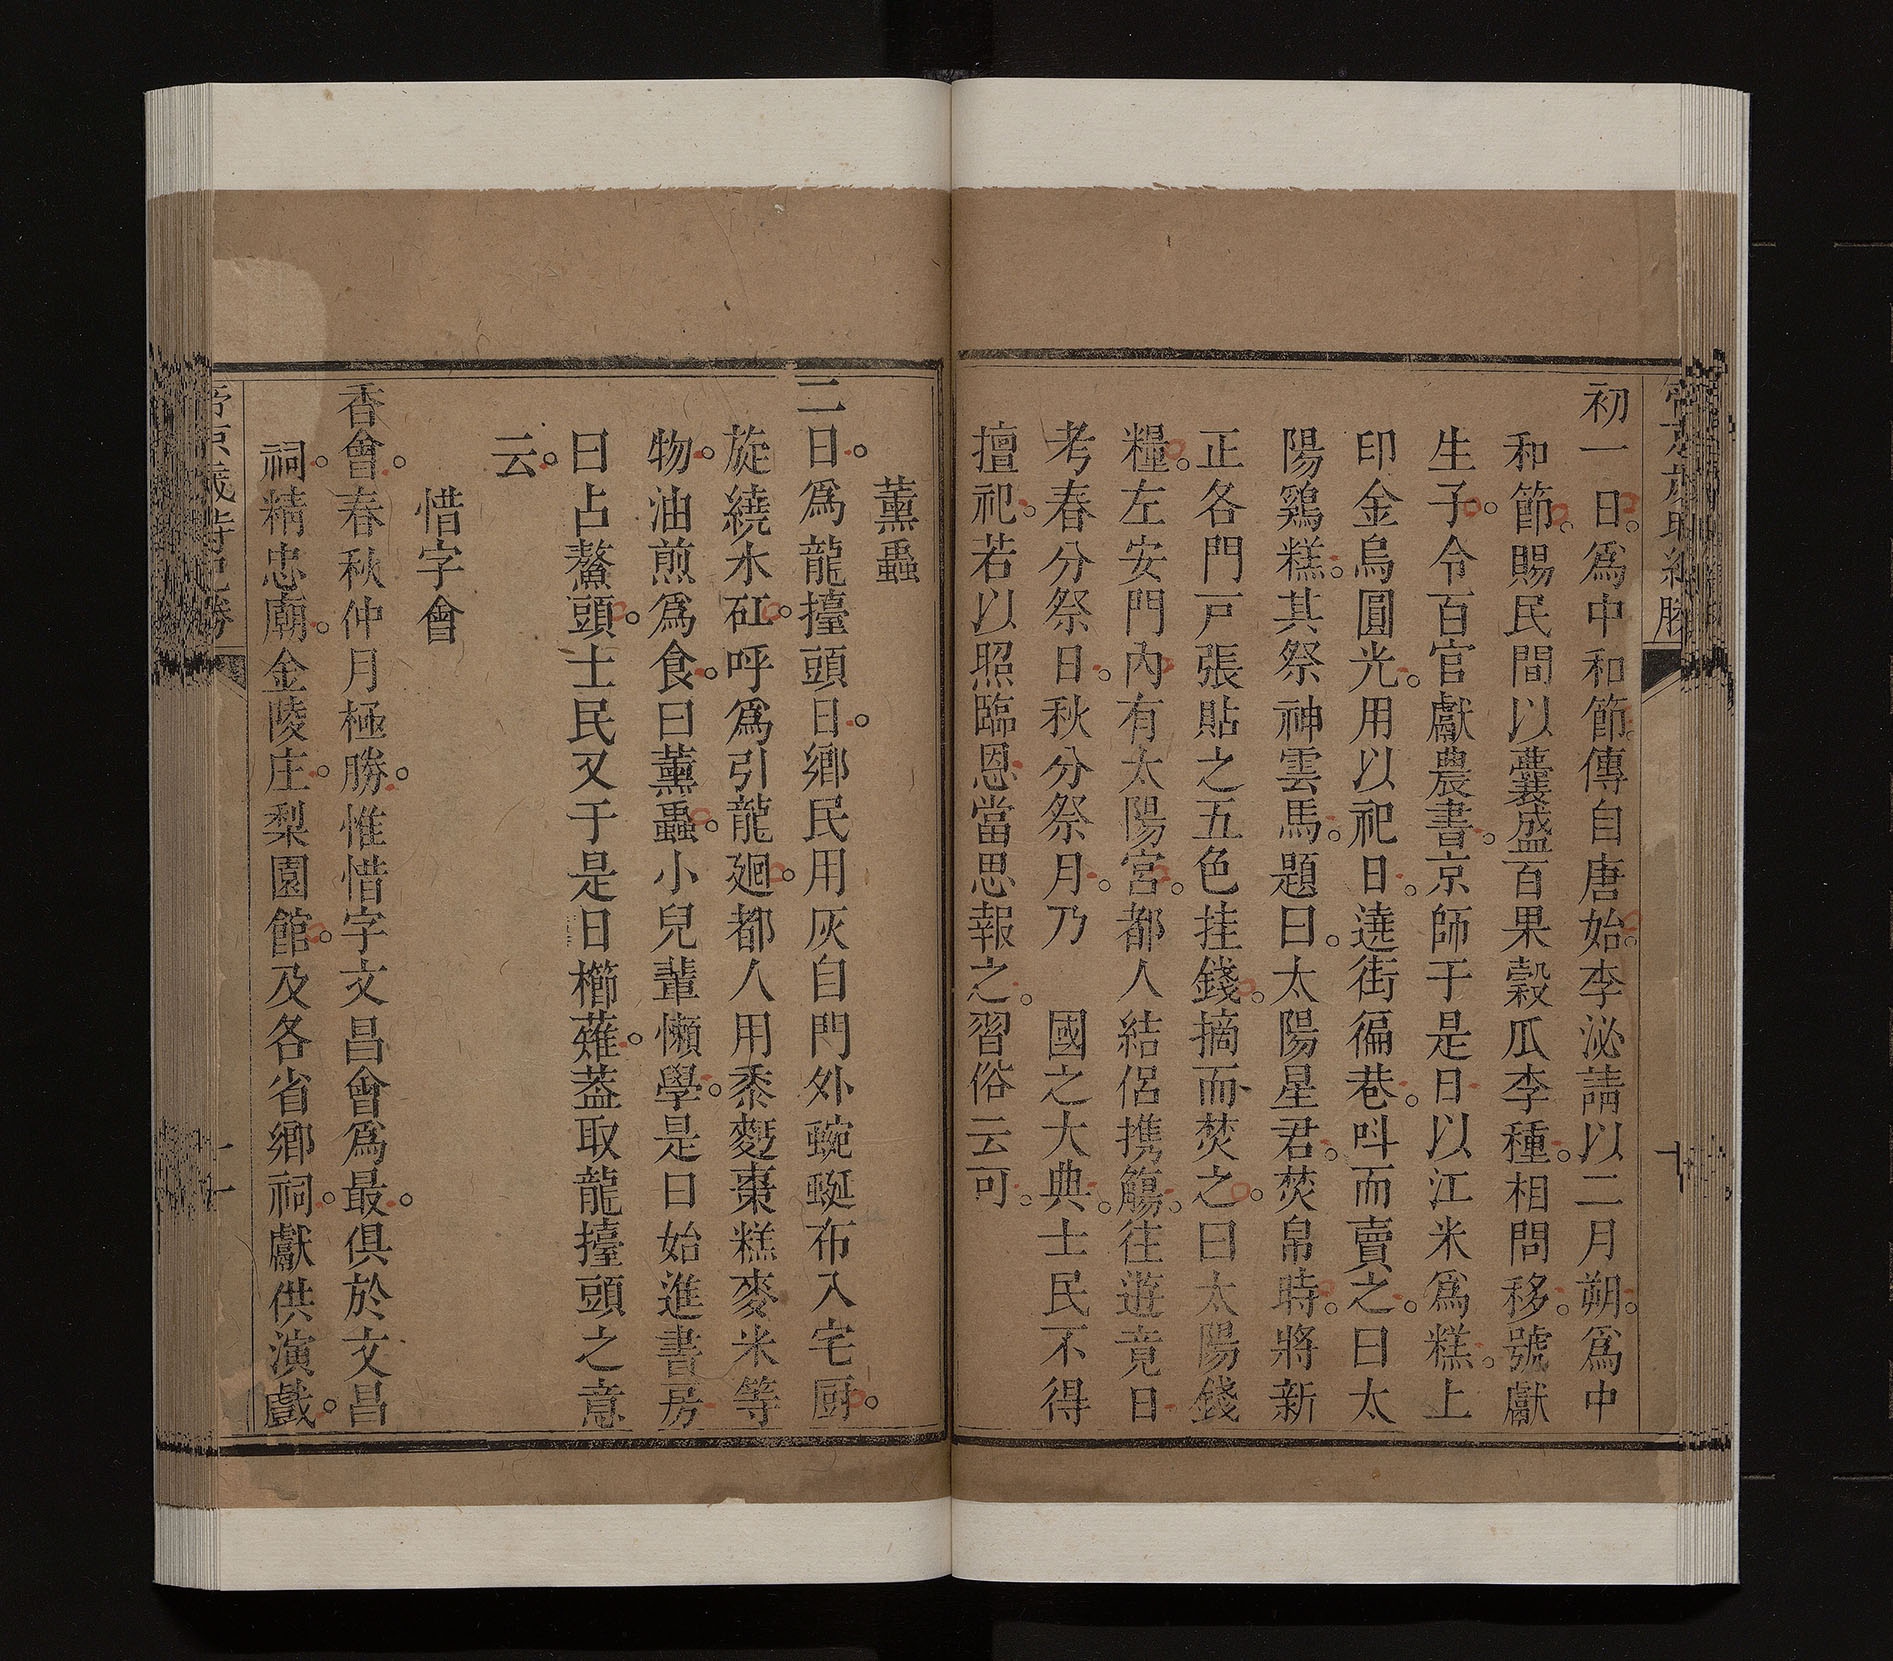 初一日。爲中和節。傳自唐始。李泌請以二月朔。爲中
和節。賜民間以囊盛百果穀瓜李種。相問移。號獻
生子。令百官獻農書。京師于是日以江米爲糕。上
印金烏圓光。用以祀日。遶街徧巷。呌而賣之。曰太
陽鷄糕。其祭神雲馬。題曰。太陽星君。焚帛時。將新
正各門戸張貼之五色挂錢。摘而焚之。曰太陽錢
糧。左安門內有太陽宮。都人結侶携觴。往遊竟日
考春分祭日。秋分祭月。乃 國之大典。士民不得
擅祀。若以照臨恩當思報之。習俗云可。
薰蟲
二日。爲龍擡頭日。鄉民用灰自門外蜿蜒布入宅厨。
旋繞水缸。呼爲引龍廻。都人用黍麪棗糕麥米等
物。油煎爲食。曰薰蟲。小兒輩懶學。是日始進書房
曰占鰲頭。士民又于是日櫛薙。葢取龍擡頭之意
云。
惜字會
香會。春秋仲月極勝。惟惜字文昌會爲最。俱於文昌
祠。精忠廟。金陵庄。梨園館。及各省鄉祠。獻供演戲。
帝京歲時紀勝
十
帝京歲時紀勝
十一